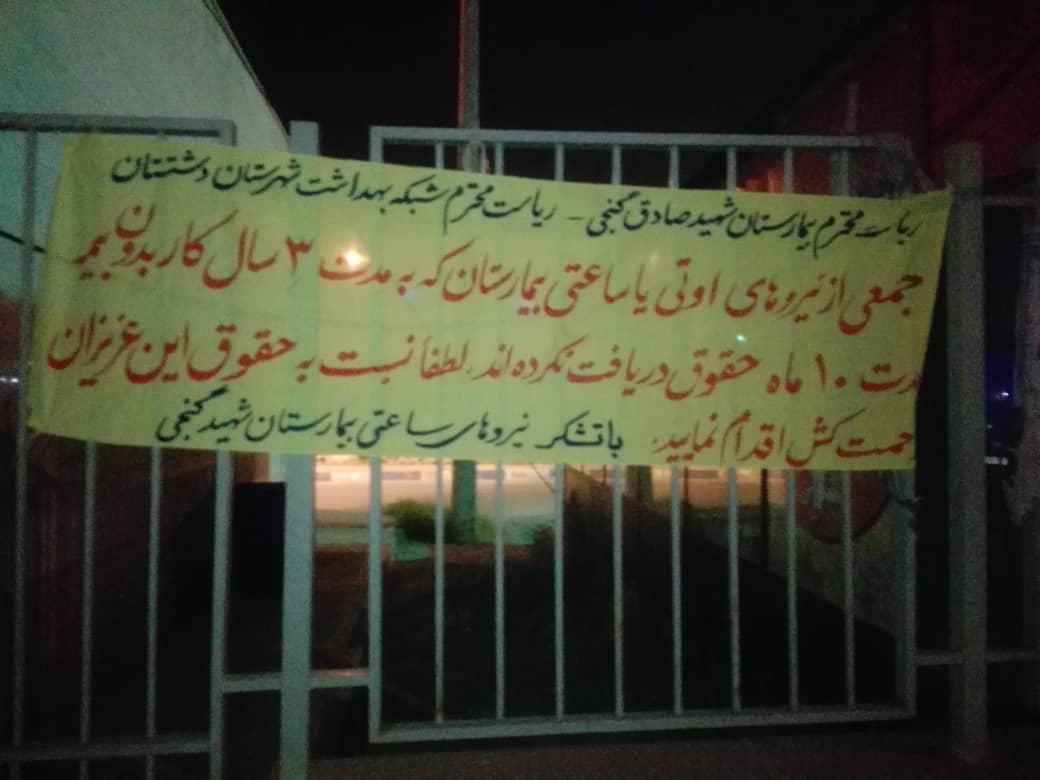 ریاست محترم بیمارستان شهید صادق گنجی - ریاست محترم شبکه بهداشت شهرستان دشتستان
جمعی از نیروهای اوتی یا ساعتی بیمارستان که به مدت ۳ سال کار بدون بیمه
مدت ۱۰ ماه حقوق دریافت نکرده اند. لطفاً نسبت به حقوق این عزیزان
زحمت کش اقدام نمایید. باتشکر نیروهای ساعتی بیمارستان شهید گنجی